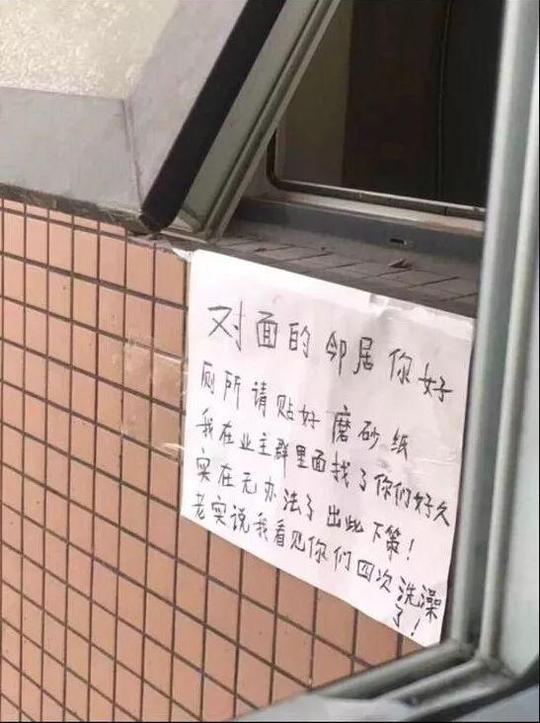 对面的邻居你好
厕所请贴好磨砂纸
我在业主群里面找了你们好久
实在无办法了出此下策!
老实说我看见你们四次洗澡
了!